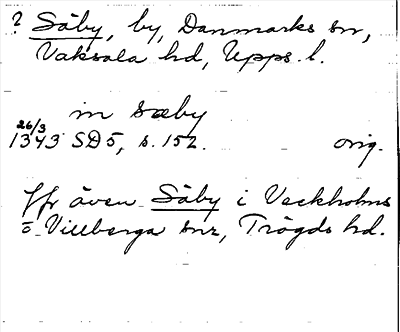 ? Säby, by, Danmarks sn,
Vaksala hd, Upps. l.
in sæby
26/3
1343 SD5, s. 152. orig.
Jfr även Säby i Veckholms
o Villberga snr, Trögds hd.